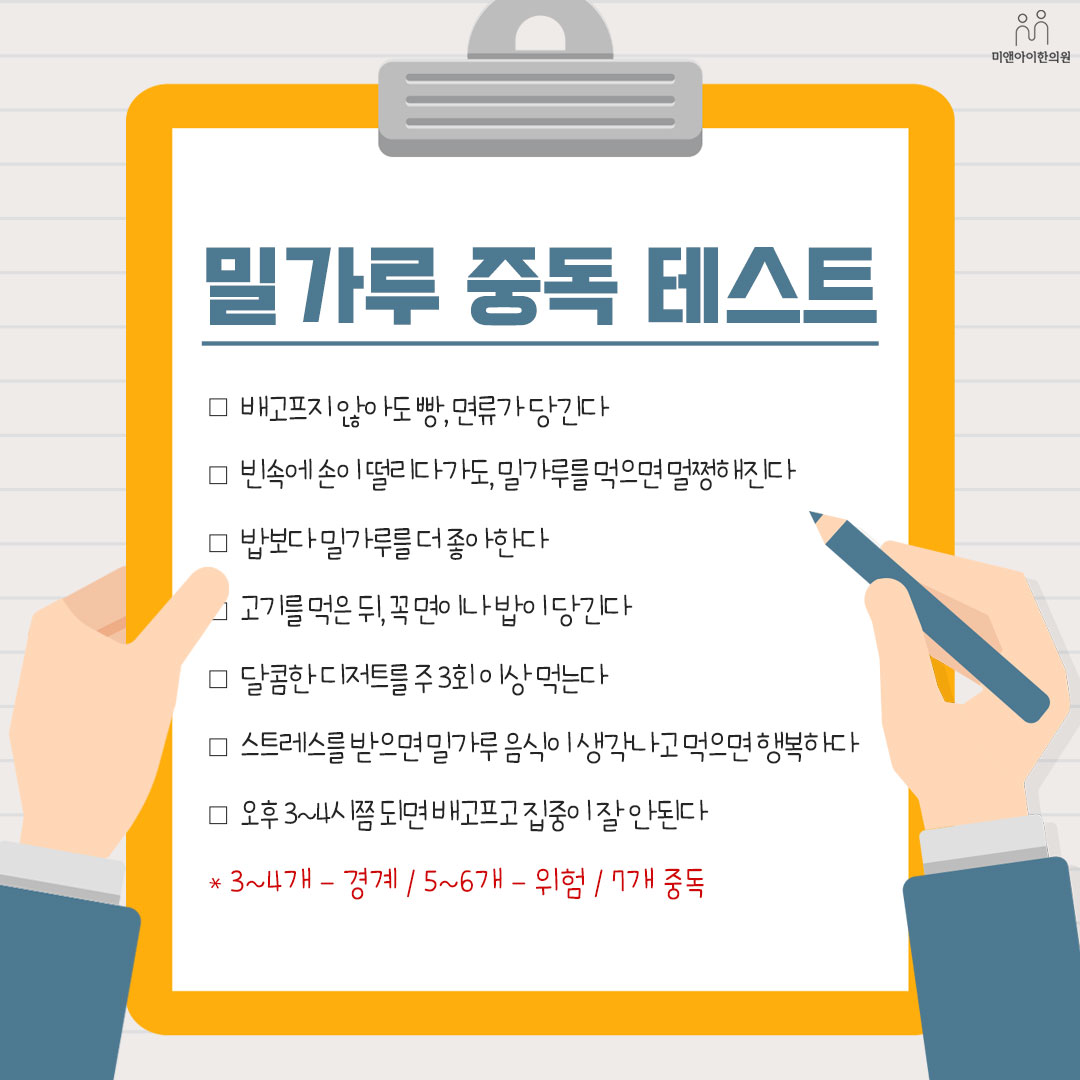 미앤아이한의원
밀가루 중독 테스트
□ 배고프지 않아도 빵, 면류가 당긴다
□ 빈속에 손이 떨리다가도, 밀가루를 먹으면 멀쩡해진다
□ 밥보다 밀가루를 더 좋아한다
□ 고기를 먹은 뒤, 꼭 면이나 밥이 당긴다
□ 달콤한 디저트를 주 3회 이상 먹는다
□ 스트레스를 받으면 밀가루 음식이 생각나고 먹으면 행복하다
□ 오후 3~4시쯤 되면 배고프고 집중이 잘 안된다
* 3~4개 - 경계 / 5~6개 - 위험 / 7개 중독